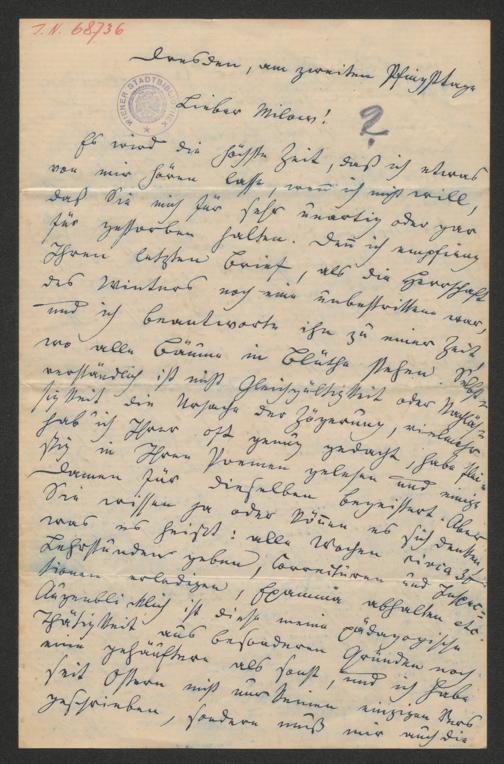 J. N. 68736
Dresden, am zweiten Pfingsttage
WIENER STADTBIBLIOTHEK
Lieber Milow!
?
Es wird die höchste Zeit, daß ich etwas
von mir hören lasse, wenn ich nicht will,
daß Sie mich für sehr unartig oder gar
für gestorben halten. Denn ich empfing
Ihren letzten Brief, als die Herrschaft
des Winters noch eine unbestrittene war,
und ich beantworte ihn zu einer Zeit,
wo alle Bäume in Blüthe stehen. Selbst-
verständlich ist nicht Gleichgültigkeit oder Nachläs-
sigkeit die Ursache der Zögerung, vielmehr
hab' ich Ihrer oft genug gedacht, habe flei-
ßig in Ihren Poemen gelesen und einige
Damen für dieselben begeistert. Aber
Sie wissen ja oder können es sich denken,
was es heißt: alle Wochen circa 30
Lehrstunden geben, Correcturen und Inspec-
tionen erledigen, Examina abhalten etc.
Augenblicklich ist diese meine pädagogische
Thätigkeit aus besonderen Gründen noch
eine gehäuftere als sonst, und ich habe
seit Ostern nicht nur keinen einzigen Vers
geschrieben, sondern muß mir auch die